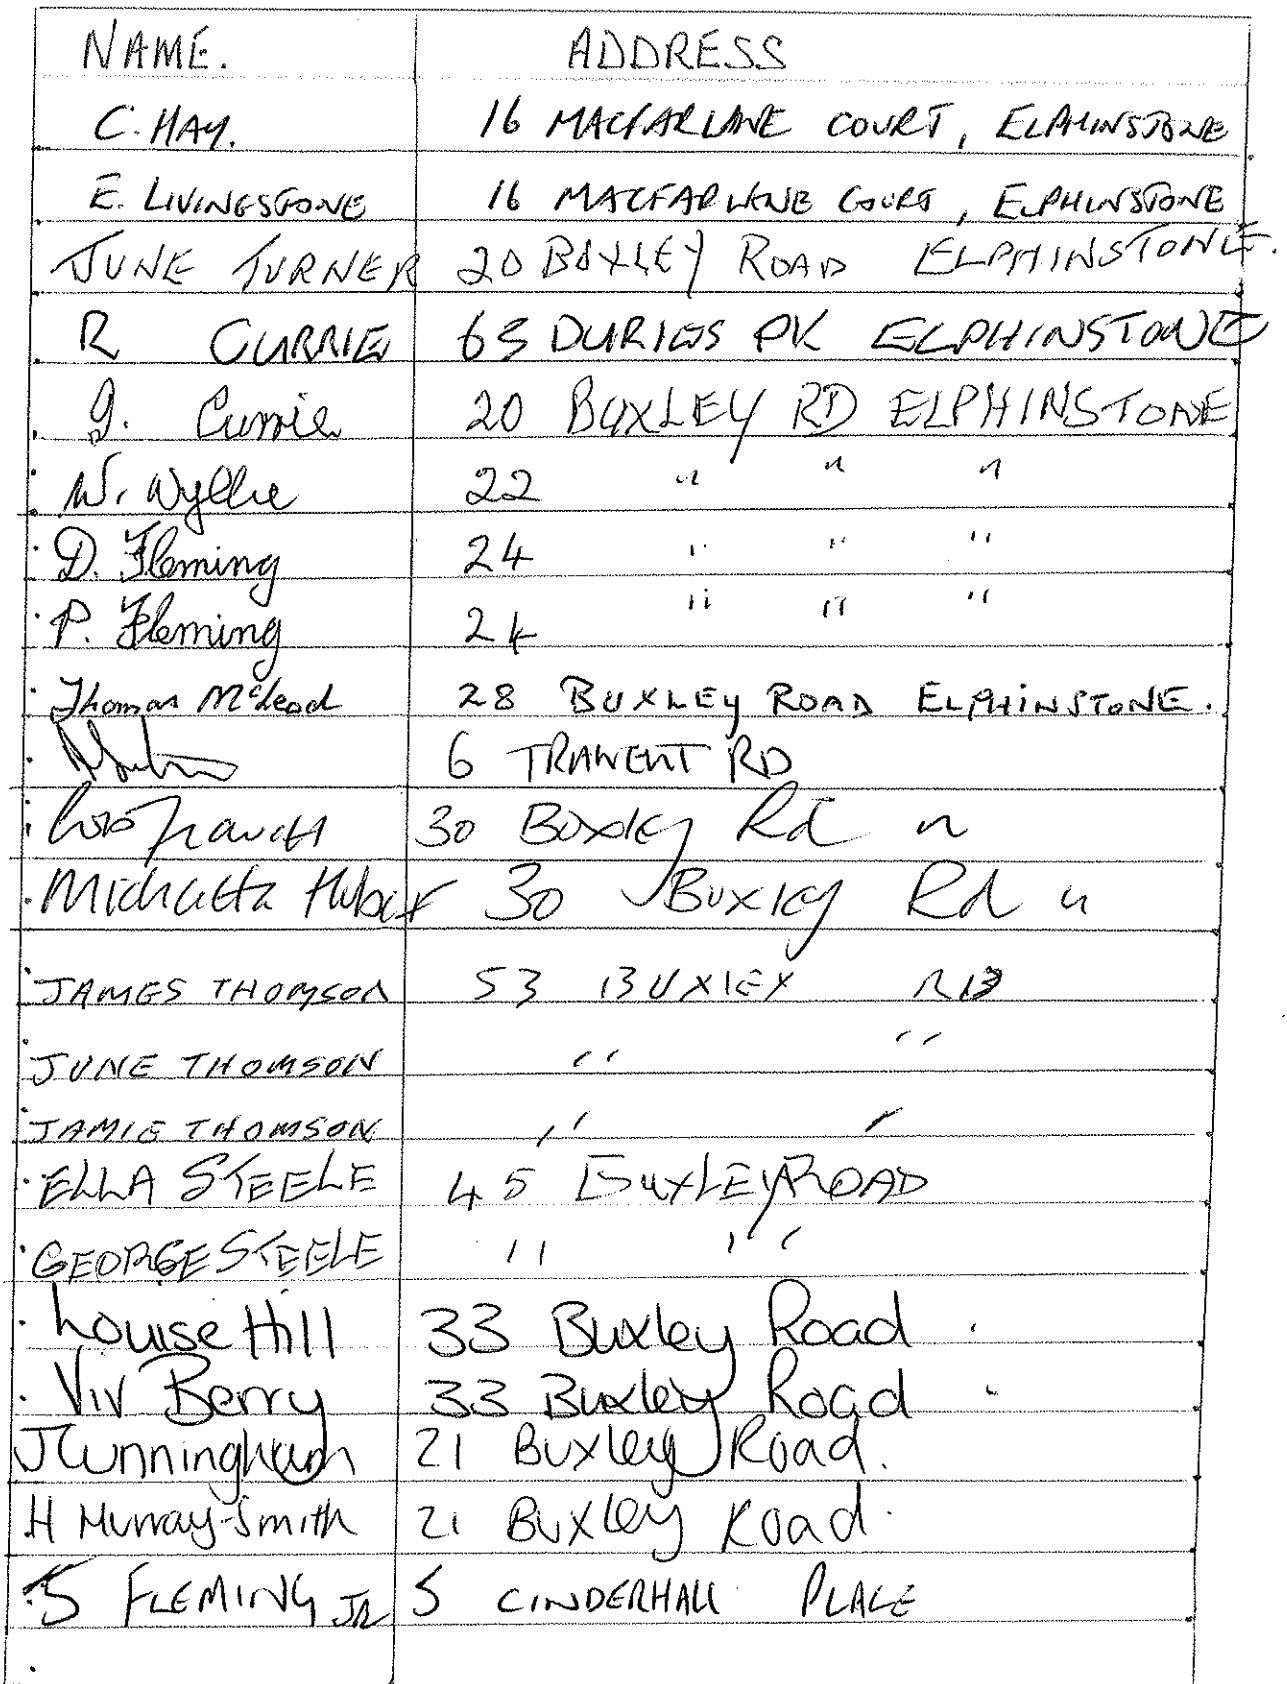 NAME. ADDRESS
C. HAY. 16 MACFARLANE COURT, ELPHINSTONE
E. LIVINGSTONE 16 MACFARLANE COURT, ELPHINSTONE
JUNE TURNER 20 BUXLEY ROAD ELPHINSTONE.
R CURRIE 63 DURIES PK ELPHINSTONE
J. Currie 20 BUXLEY RD ELPHINSTONE
W. Wyllie 22 " " "
D. Fleming 24 " " "
P. Fleming 24 " " "
Thomas McLeod 28 BUXLEY ROAD ELPHINSTONE.
6 TRANENT RD
30 Buxley Rd "
30 Buxley Rd "
JAMES THOMSON 53 BUXLEY RD
JUNE THOMSON " "
JAMIE THOMSON " "
ELLA STEELE 45 BUXLEY ROAD
GEORGE STEELE " "
Louise Hill 33 Buxley Road
Viv Berry 33 Buxley Road
J Cunningham 21 Buxley Road.
H Murray-Smith 21 Buxley Road.
S FLEMING JR 5 CINDERHALL PLACE